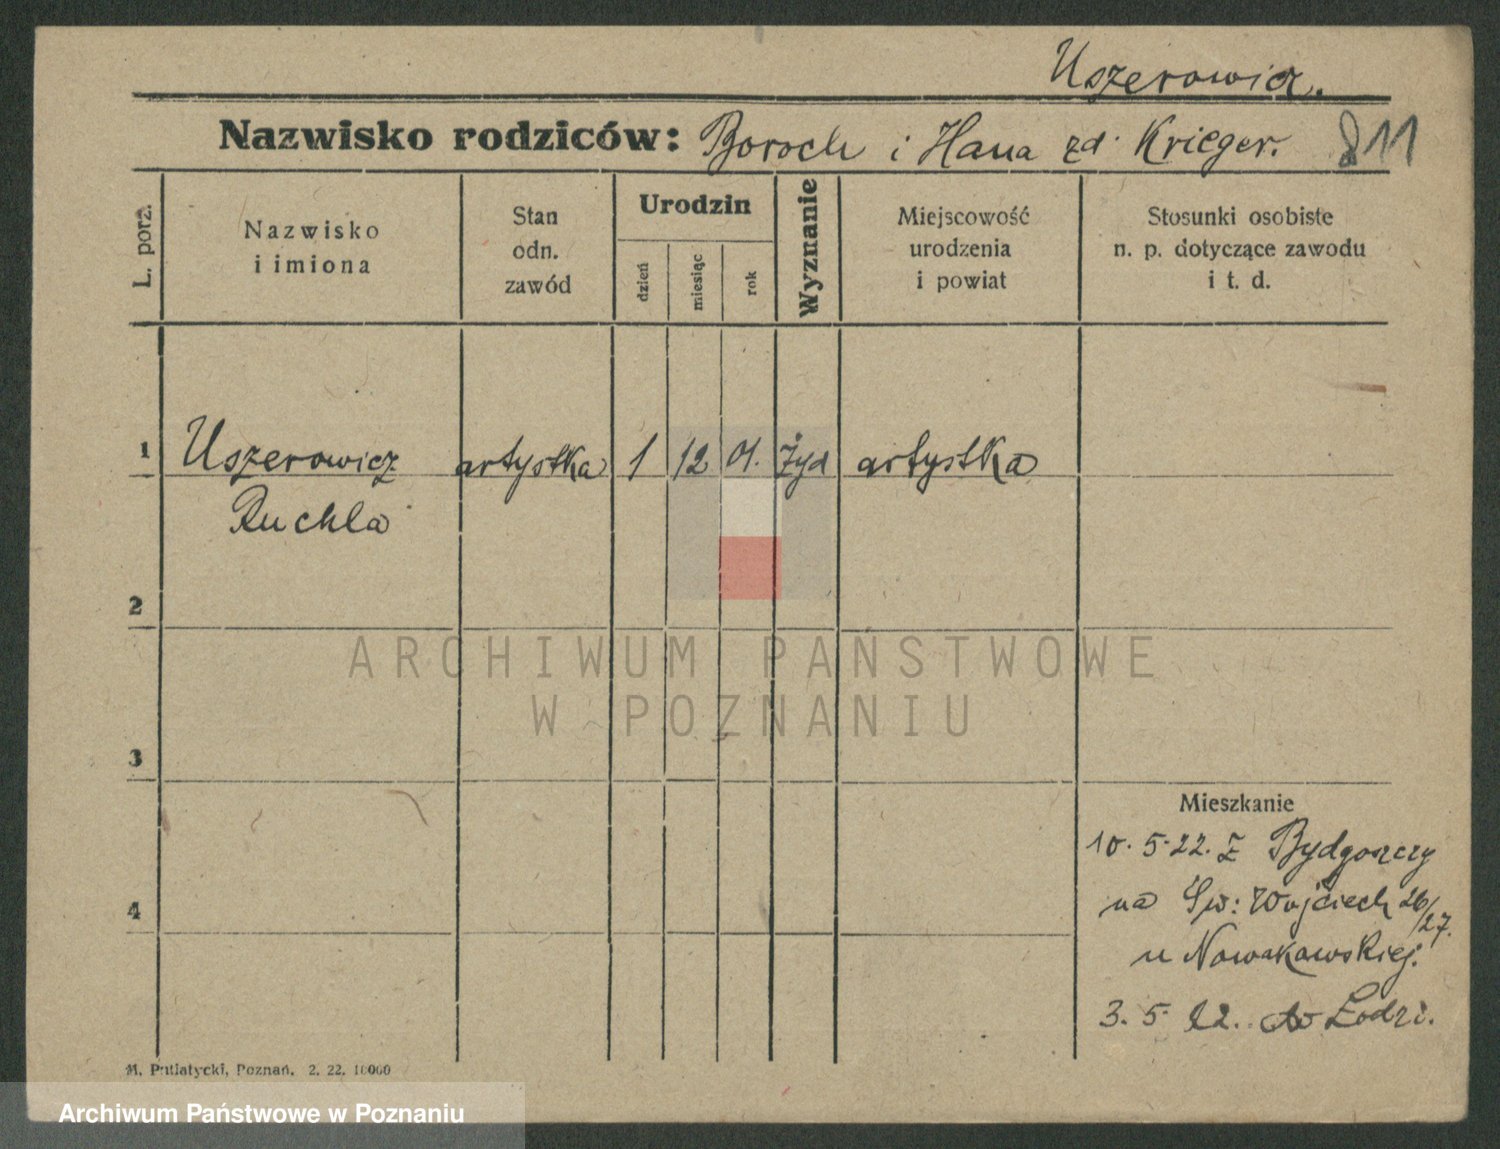 Uszerowicz.
Nazwisko rodziców: Boroch i Hana zd. Krieger. 811
L. porz.
Nazwisko
i imiona
Stan
odn.
zawód
Urodzin
dzień
miesiąc
rok
Wyznanie
Miejscowość
urodzenia
i powiat
Stosunki osobiste
n. p. dotyczące zawodu
i t. d.
1 Uszerowicz artystka 1 12 01. żyd artystka
Ruchla
2
ARCHIWUM PAŃSTWOWE
W POZNANIU
3
Mieszkanie
10. 5. 22. z Bydgoszczy
4
na Św: Wojciech 26/27.
u Nowakowskiej.
3. 5. 22. do Łodzi.
M. Putiatycki, Poznań. 2. 22. 10000
Archiwum Państwowe w Poznaniu